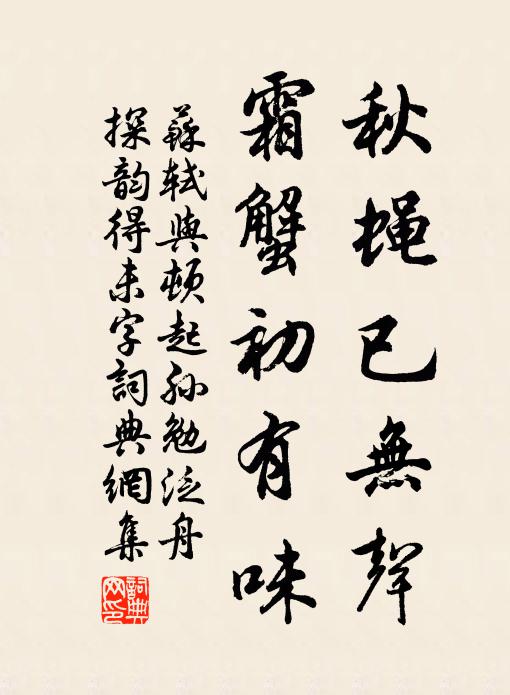 秋蝇已無聲
霜蟹初有味
蘇轼與頓起孙勉泛舟
探韵得未字詞典網集
詞典网印